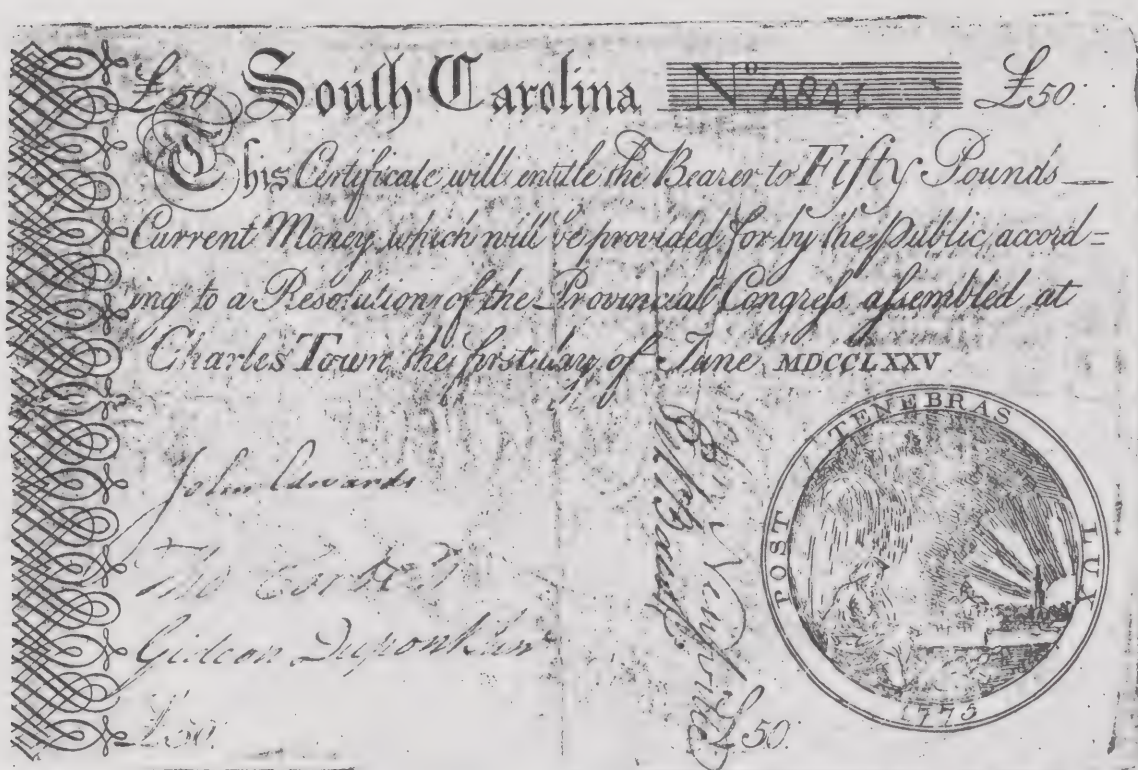 £50 South Carolina No 4841 £50.
This Certificate will entitle the Bearer to Fifty Pounds
Current Money which will be provided for by the Public, accord=
ing to a Resolution of the Provincial Congress assembled at
Charles Town the first day of June MDCCLXXV
John Edwards
Tho Corbett
Gideon Dupont Jun
£50.
£50.
POST TENEBRAS LUX
1775